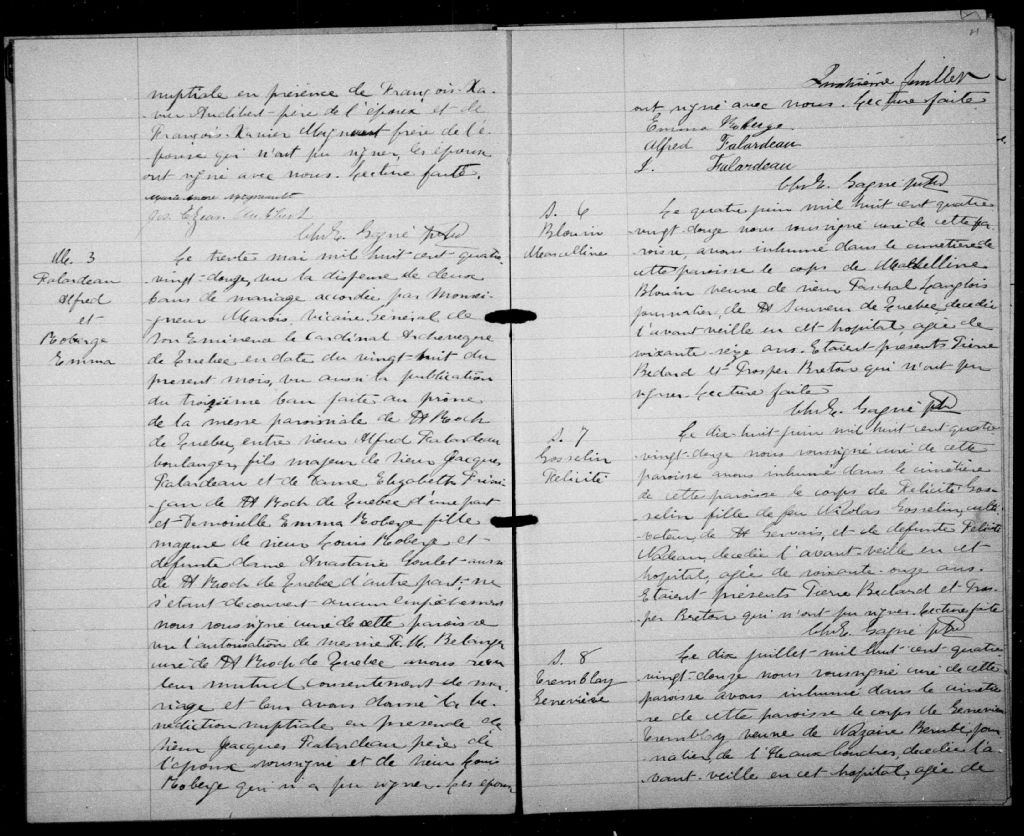 nuptiale en présence de François-Xa-
vier Audibert père de l'époux et de
François-Xavier Mignault frère de l'é-
pouse qui n'ont pu signer, les époux
ont signé avec nous. Lecture faite.
Jos. Elzear Audibert
Chs. E. Gagné ptre
M. 3
Falardeau
Alfred
et
Roberge
Emma
Le trente mai mil huit-cent-quatre
vingt-douze, vu la dispense de deux
bans de mariage accordée par Monsei-
gneur Marois, vicaire Général de
Son Eminence le Cardinal Archevêque
de Québec, en date du vingt-huit du
present mois, vu aussi la publication
du troisième ban faite au prône
de la messe paroissiale de St Roch
de Québec, entre sieur Alfred Falardeau
boulanger, fils majeur de sieur Jacques
Falardeau et de Dame Elizabeth
de St Roch de Québec d'une part
et Demoiselle Emma Roberge fille
majeure de sieur Louis Roberge et
defunte dame Anastasie Goulet aussi
de St Roch de Québec d'autre part, ne
s'étant découvert aucun empêchement
nous soussigné curé de cette paroisse
vu l'autorisation de messire F. H. Belanger
curé de St Roch de Québec avons reçu
leur mutuel consentement de ma-
riage et leur avons donné la bé-
nédiction nuptiale en présence de
sieur Jacques Falardeau père de
l'époux soussigné et de sieur Louis
Roberge qui n'a pu signer. Les époux
Quatrième feuillet
ont signé avec nous. Lecture faite
Emma Roberge
Alfred Falardeau
J. Falardeau
Chs. E. Gagné ptre
S. 6
Blouin
Marcelline
Le quatre juin mil huit cent quatre
vingt-douze nous soussigné curé de cette pa-
roisse, avons inhumé dans le cimetière de
cette paroisse le corps de Marcelline
Blouin veuve de sieur Paschal Langlois
journalier, de St Sauveur de Québec, decedée
l'avant veille en cet hopital, agée de
soixante-seize ans. Etaient présents Pierre
Bedard et Prosper Breton qui n'ont pu
signer. Lecture faite
Chs. E. Gagné ptre
S. 7
Gosselin
Felicité
Le dix-huit juin mil huit cent quatre
vingt-douze nous soussigné curé de cette
paroisse avons inhumé dans le cimetière
de cette paroisse le corps de Felicité Gos-
selin fille de feu Nicolas Gosselin, culti-
vateur, de St Gervais, et de defunte Felicité
Nadeau, decedée l'avant-veille en cet
hopital, agée de soixante-onze ans.
Etaient présents Pierre Bedard et Pros-
per Breton qui n'ont pu signer. Lecture faite
Chs. E. Gagné ptre
S. 8
Tremblay
Geneviève
Le dix juillet mil huit cent quatre
vingt-douze nous soussigné curé de cette
paroisse avons inhumé dans le cimetiè-
re de cette paroisse le corps de Geneviève
Tremblay veuve de Nazaire Berubé, jour-
nalier, de l'Ile aux Coudres, decedée l'a-
vant-veille en cet hopital, agée de